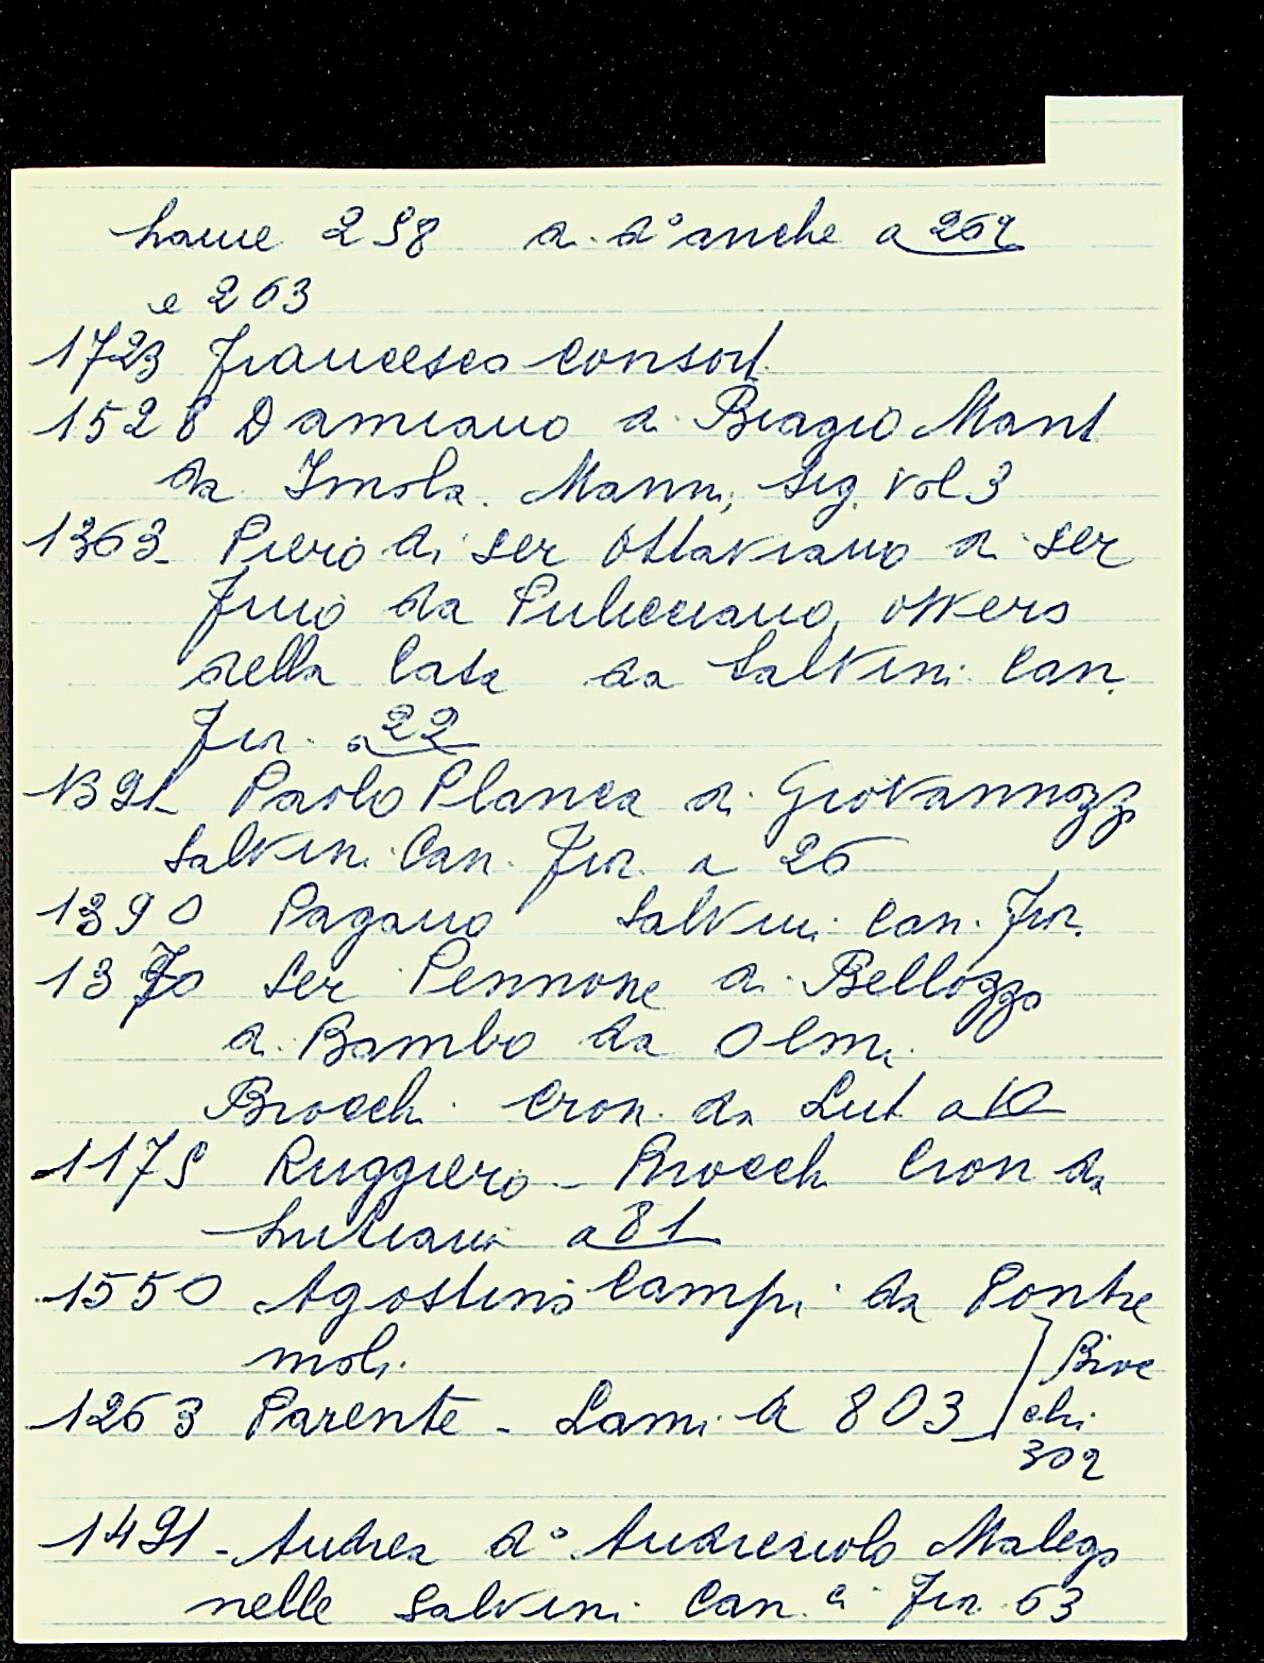 258 di d° anche a 262
e 263
1723 Francesco Consort.
1528 Damiano di Biagio Mant
da Imola. Manni, Sig. vol 3
1363 Piero di ser Ottaviano di ser
Fino da Pulicciano, ovvero
della Casa da Salvini Can.
Fior. a 22
1391 Paolo Planca di Giovannozzo
Salvini Can. Fior. a 26
1390 Pagano Salvini Can. Fior.
1370 Ser Pennone di Bellozzo
di Bambo da Olmi
Brocchi Cron. da Lut a 10
1175 Ruggiero - Brocchi Cron da
Lutiano a 81
1550 Agostino Campi da Pontre
moli.
1263 Parente - Lami a 803
302
1491 - Andrea d° Andreaiolo Malego
nelle Salvini Can. i Fior. 63